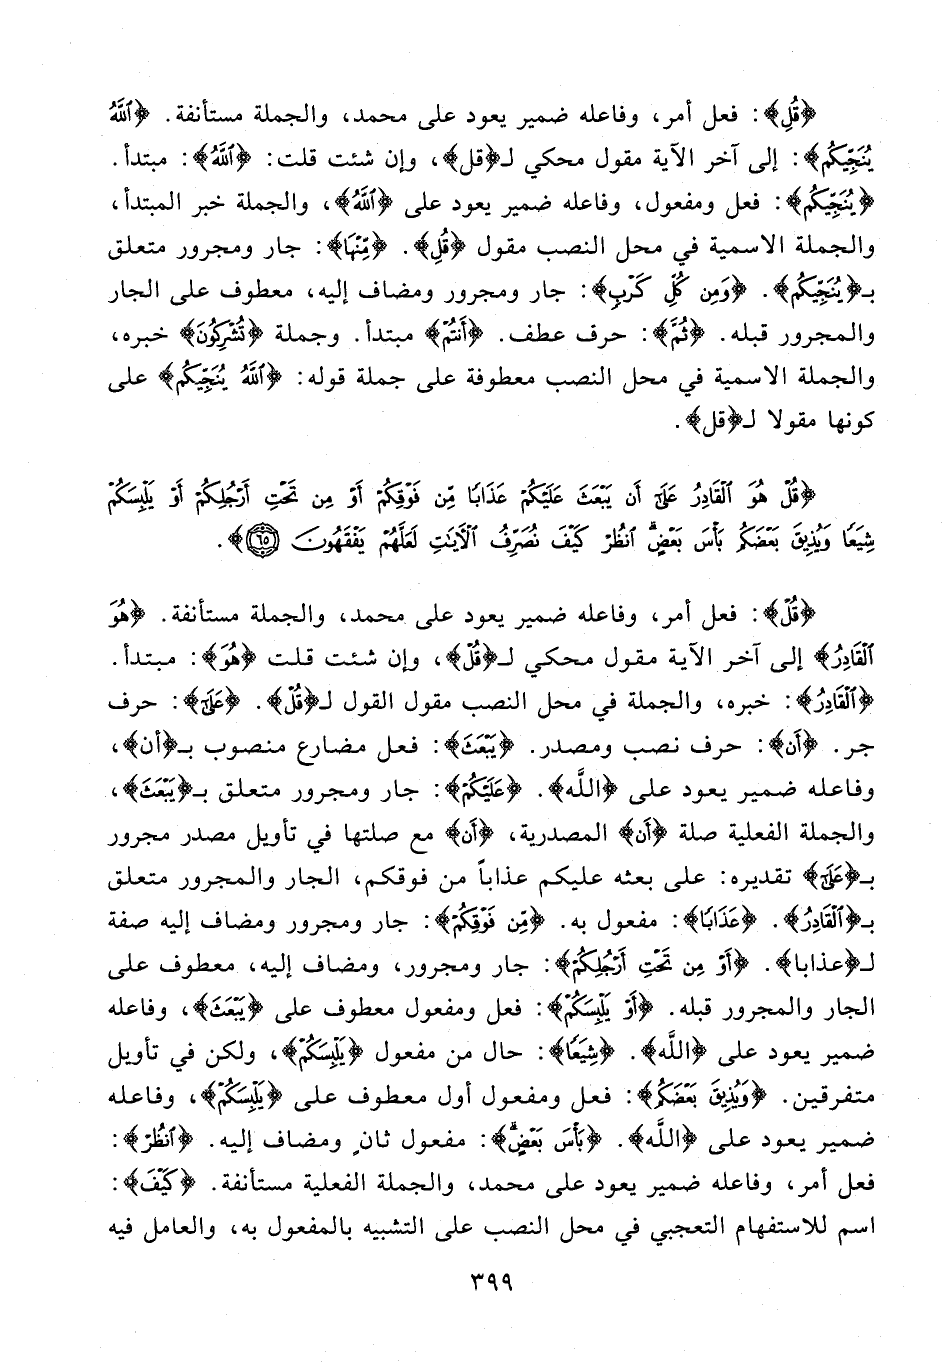 ﴿قُلِ﴾: فعل أمر، وفاعله ضمير يعود على محمد، والجملة مستأنفة. ﴿ٱللَّهُ
يُنَجِّيكُم﴾: إلى آخر الآية مقول محكي لـ﴿قل﴾، وإن شئت قلت: ﴿ٱللَّهُ﴾: مبتدأ.
﴿يُنَجِّيكُم﴾: فعل ومفعول، وفاعله ضمير يعود على ﴿ٱللَّهُ﴾، والجملة خبر المبتدأ،
والجملة الاسمية في محل النصب مقول ﴿قُلِ﴾. ﴿مِّنْهَا﴾: جار ومجرور متعلق
بـ﴿يُنَجِّيكُم﴾. ﴿وَمِن كُلِّ كَرْبٍ﴾: جار ومجرور ومضاف إليه، معطوف على الجار
والمجرور قبله. ﴿ثُمَّ﴾: حرف عطف. ﴿أَنتُمْ﴾ مبتدأ. وجملة ﴿تُشْرِكُونَ﴾ خبره،
والجملة الاسمية في محل النصب معطوفة على جملة قوله: ﴿ٱللَّهُ يُنَجِّيكُم﴾ على
كونها مقولا لـ﴿قل﴾.
﴿قُلْ هُوَ ٱلْقَادِرُ عَلَىٰٓ أَن يَبْعَثَ عَلَيْكُمْ عَذَابًا مِّن فَوْقِكُمْ أَوْ مِن تَحْتِ أَرْجُلِكُمْ أَوْ يَلْبِسَكُمْ
شِيَعًا وَيُذِيقَ بَعْضَكُم بَأْسَ بَعْضٍ ۗ ٱنظُرْ كَيْفَ نُصَرِّفُ ٱلْءَايَٰتِ لَعَلَّهُمْ يَفْقَهُونَ ٦٥﴾.
﴿قُلْ﴾: فعل أمر، وفاعله ضمير يعود على محمد، والجملة مستأنفة. ﴿هُوَ
ٱلْقَادِرُ﴾ إلى آخر الآية مقول محكي لـ﴿قُلْ﴾، وإن شئت قلت ﴿هُوَ﴾: مبتدأ.
﴿ٱلْقَادِرُ﴾: خبره، والجملة في محل النصب مقول القول لـ﴿قُلْ﴾. ﴿عَلَىٰٓ﴾: حرف
جر. ﴿أَن﴾: حرف نصب ومصدر. ﴿يَبْعَثَ﴾: فعل مضارع منصوب بـ﴿أن﴾،
وفاعله ضمير يعود على ﴿اللَّه﴾. ﴿عَلَيْكُمْ﴾: جار ومجرور متعلق بـ﴿يَبْعَثَ﴾،
والجملة الفعلية صلة ﴿أَن﴾ المصدرية، ﴿أَن﴾ مع صلتها في تأويل مصدر مجرور
بـ﴿عَلَىٰٓ﴾ تقديره: على بعثه عليكم عذاباً من فوقكم، الجار والمجرور متعلق
بـ﴿ٱلْقَادِرُ﴾. ﴿عَذَابًا﴾: مفعول به. ﴿مِّن فَوْقِكُمْ﴾: جار ومجرور ومضاف إليه صفة
لـ﴿عذابا﴾. ﴿أَوْ مِن تَحْتِ أَرْجُلِكُمْ﴾: جار ومجرور، ومضاف إليه، معطوف على
الجار والمجرور قبله. ﴿أَوْ يَلْبِسَكُمْ﴾: فعل ومفعول معطوف على ﴿يَبْعَثَ﴾، وفاعله
ضمير يعود على ﴿اللَّه﴾. ﴿شِيَعًا﴾: حال من مفعول ﴿يَلْبِسَكُمْ﴾، ولكن في تأويل
متفرقين. ﴿وَيُذِيقَ بَعْضَكُم﴾: فعل ومفعول أول معطوف على ﴿يَلْبِسَكُمْ﴾، وفاعله
ضمير يعود على ﴿اللَّه﴾. ﴿بَأْسَ بَعْضٍ ۗ﴾: مفعول ثانٍ ومضاف إليه. ﴿ٱنظُرْ﴾:
فعل أمر، وفاعله ضمير يعود على محمد، والجملة الفعلية مستأنفة. ﴿كَيْفَ﴾:
اسم للاستفهام التعجبي في محل النصب على التشبيه بالمفعول به، والعامل فيه
٣٩٩